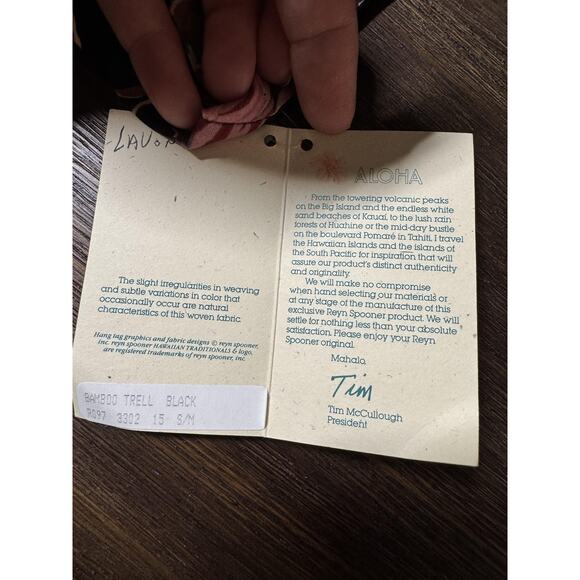 The slight irregularities in weaving
and subtle variations in color that
occasionally occur are natural
characteristics of this woven fabric.
Hang tag graphics and fabric designs © reyn spooner,
inc. reyn spooner HAWAIIAN TRADITIONALS & logo,
are registered trademarks of reyn spooner, inc.
BAMBOO TRELL BLACK
3302 15 S/M
ALOHA
From the towering volcanic peaks
on the Big Island and the endless white
sand beaches of Kauai, to the lush rain
forests of Huahine or the mid-day bustle
on the boulevard Pomaré in Tahiti, I travel
the Hawaiian Islands and the islands of
the South Pacific for inspiration that will
assure our product's distinct authenticity
and originality.
We will make no compromise
when hand selecting our materials or
at any stage of the manufacture of this
exclusive Reyn Spooner product. We will
settle for nothing less than your absolute
satisfaction. Please enjoy your Reyn
Spooner original.
Mahalo,
Tim
Tim McCullough
President